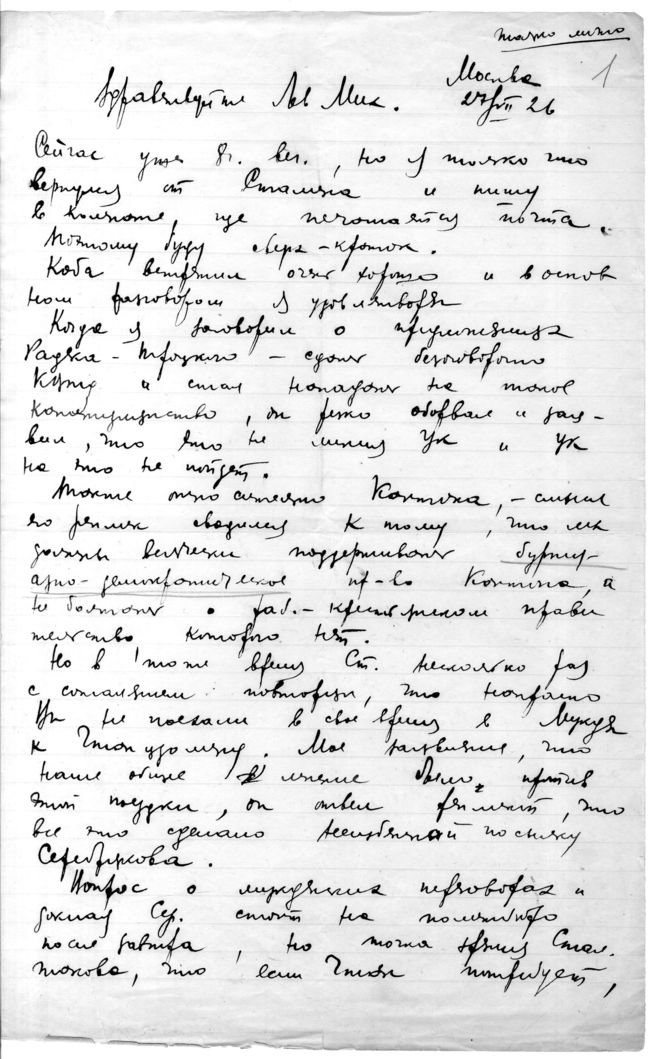 1
Москва
Здравствуйте Лев Мих.
27/VII 26
Сейчас уже 8 ч. веч., но я только что
вернулся от Сталина и пишу
в комнате, где печатается почта.
Поэтому буду сверх-краток.
Коба встретил очень хорошо и в основ
ном разговором я удовлетворен
Когда я заговорил о предложениях
Радека - Троцкого - сдать безоговорочно
и стал нападать на такое
капитулянтство, он резко оборвал и зая-
вил, что это не линия ЦК и ЦК
на это не пойдет.
Также относительно Кантона, - смысл
его реплик сводился к тому, что мы
должны всячески поддерживать буржу-
азно-демократическое пр-во Кантона, а
не болтать о раб.-крестьянском прави
тельстве которого нет.
Но в то же время Ст. несколько раз
с сожалением повторял, что напрасно
Вы не поехали в свое время в Мукден
к Чжан Цзолину. Мое заявление, что
наше общее мнение было против
этой поездки, он отвел репликой, что
все это сделано
Серебрякова.
Вопрос о мукденских переговорах и
доклад Сер. стоит на политбюро
после завтра, но точка зрения Стал.
такова, что если Чжан потребует,